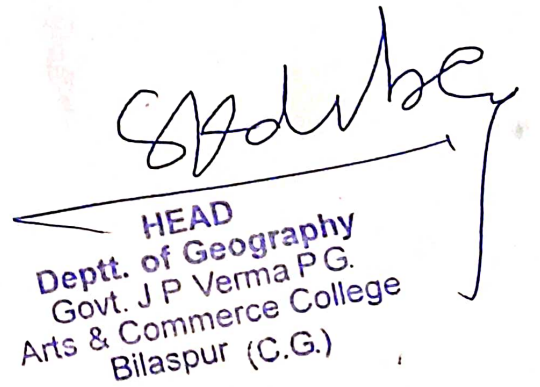 HEAD
Deptt. of Geography
Govt. J P Verma P G.
Arts & Commerce College
Bilaspur (C.G.)